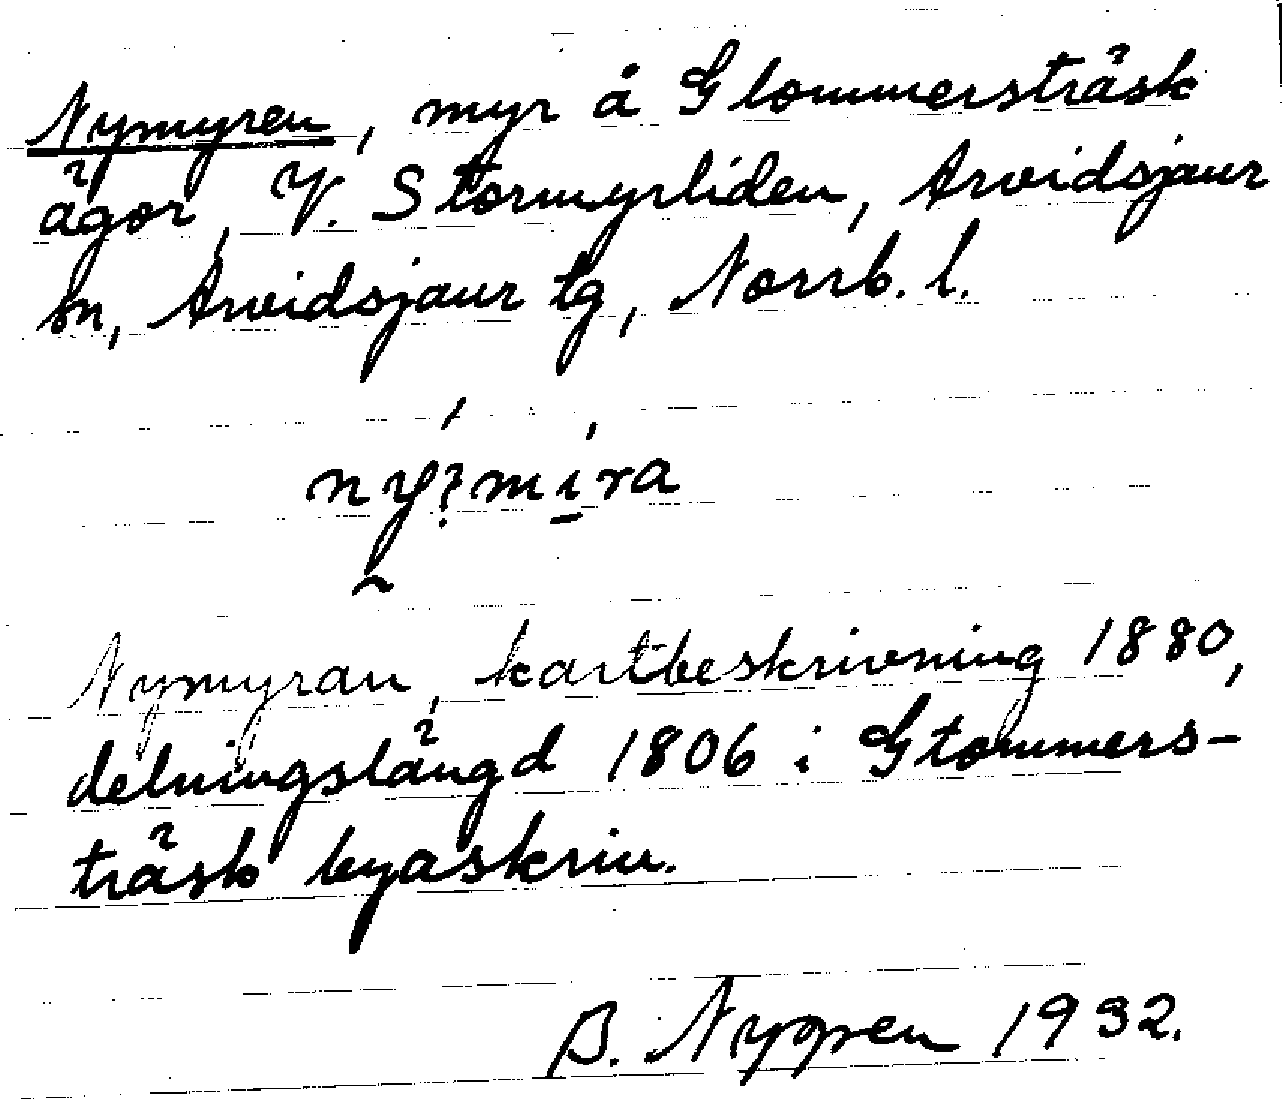 Nymyren, myr å Glommersträsk
ägor, V. Stormyrliden, Arvidsjaur
sn, Arvidsjaur tg, Norrb. l.
Nymyran, kartbeskrivning 1880,
delningslängd 1806 i Glommers-
träsk byaskriv.
B. Nygren 1932.